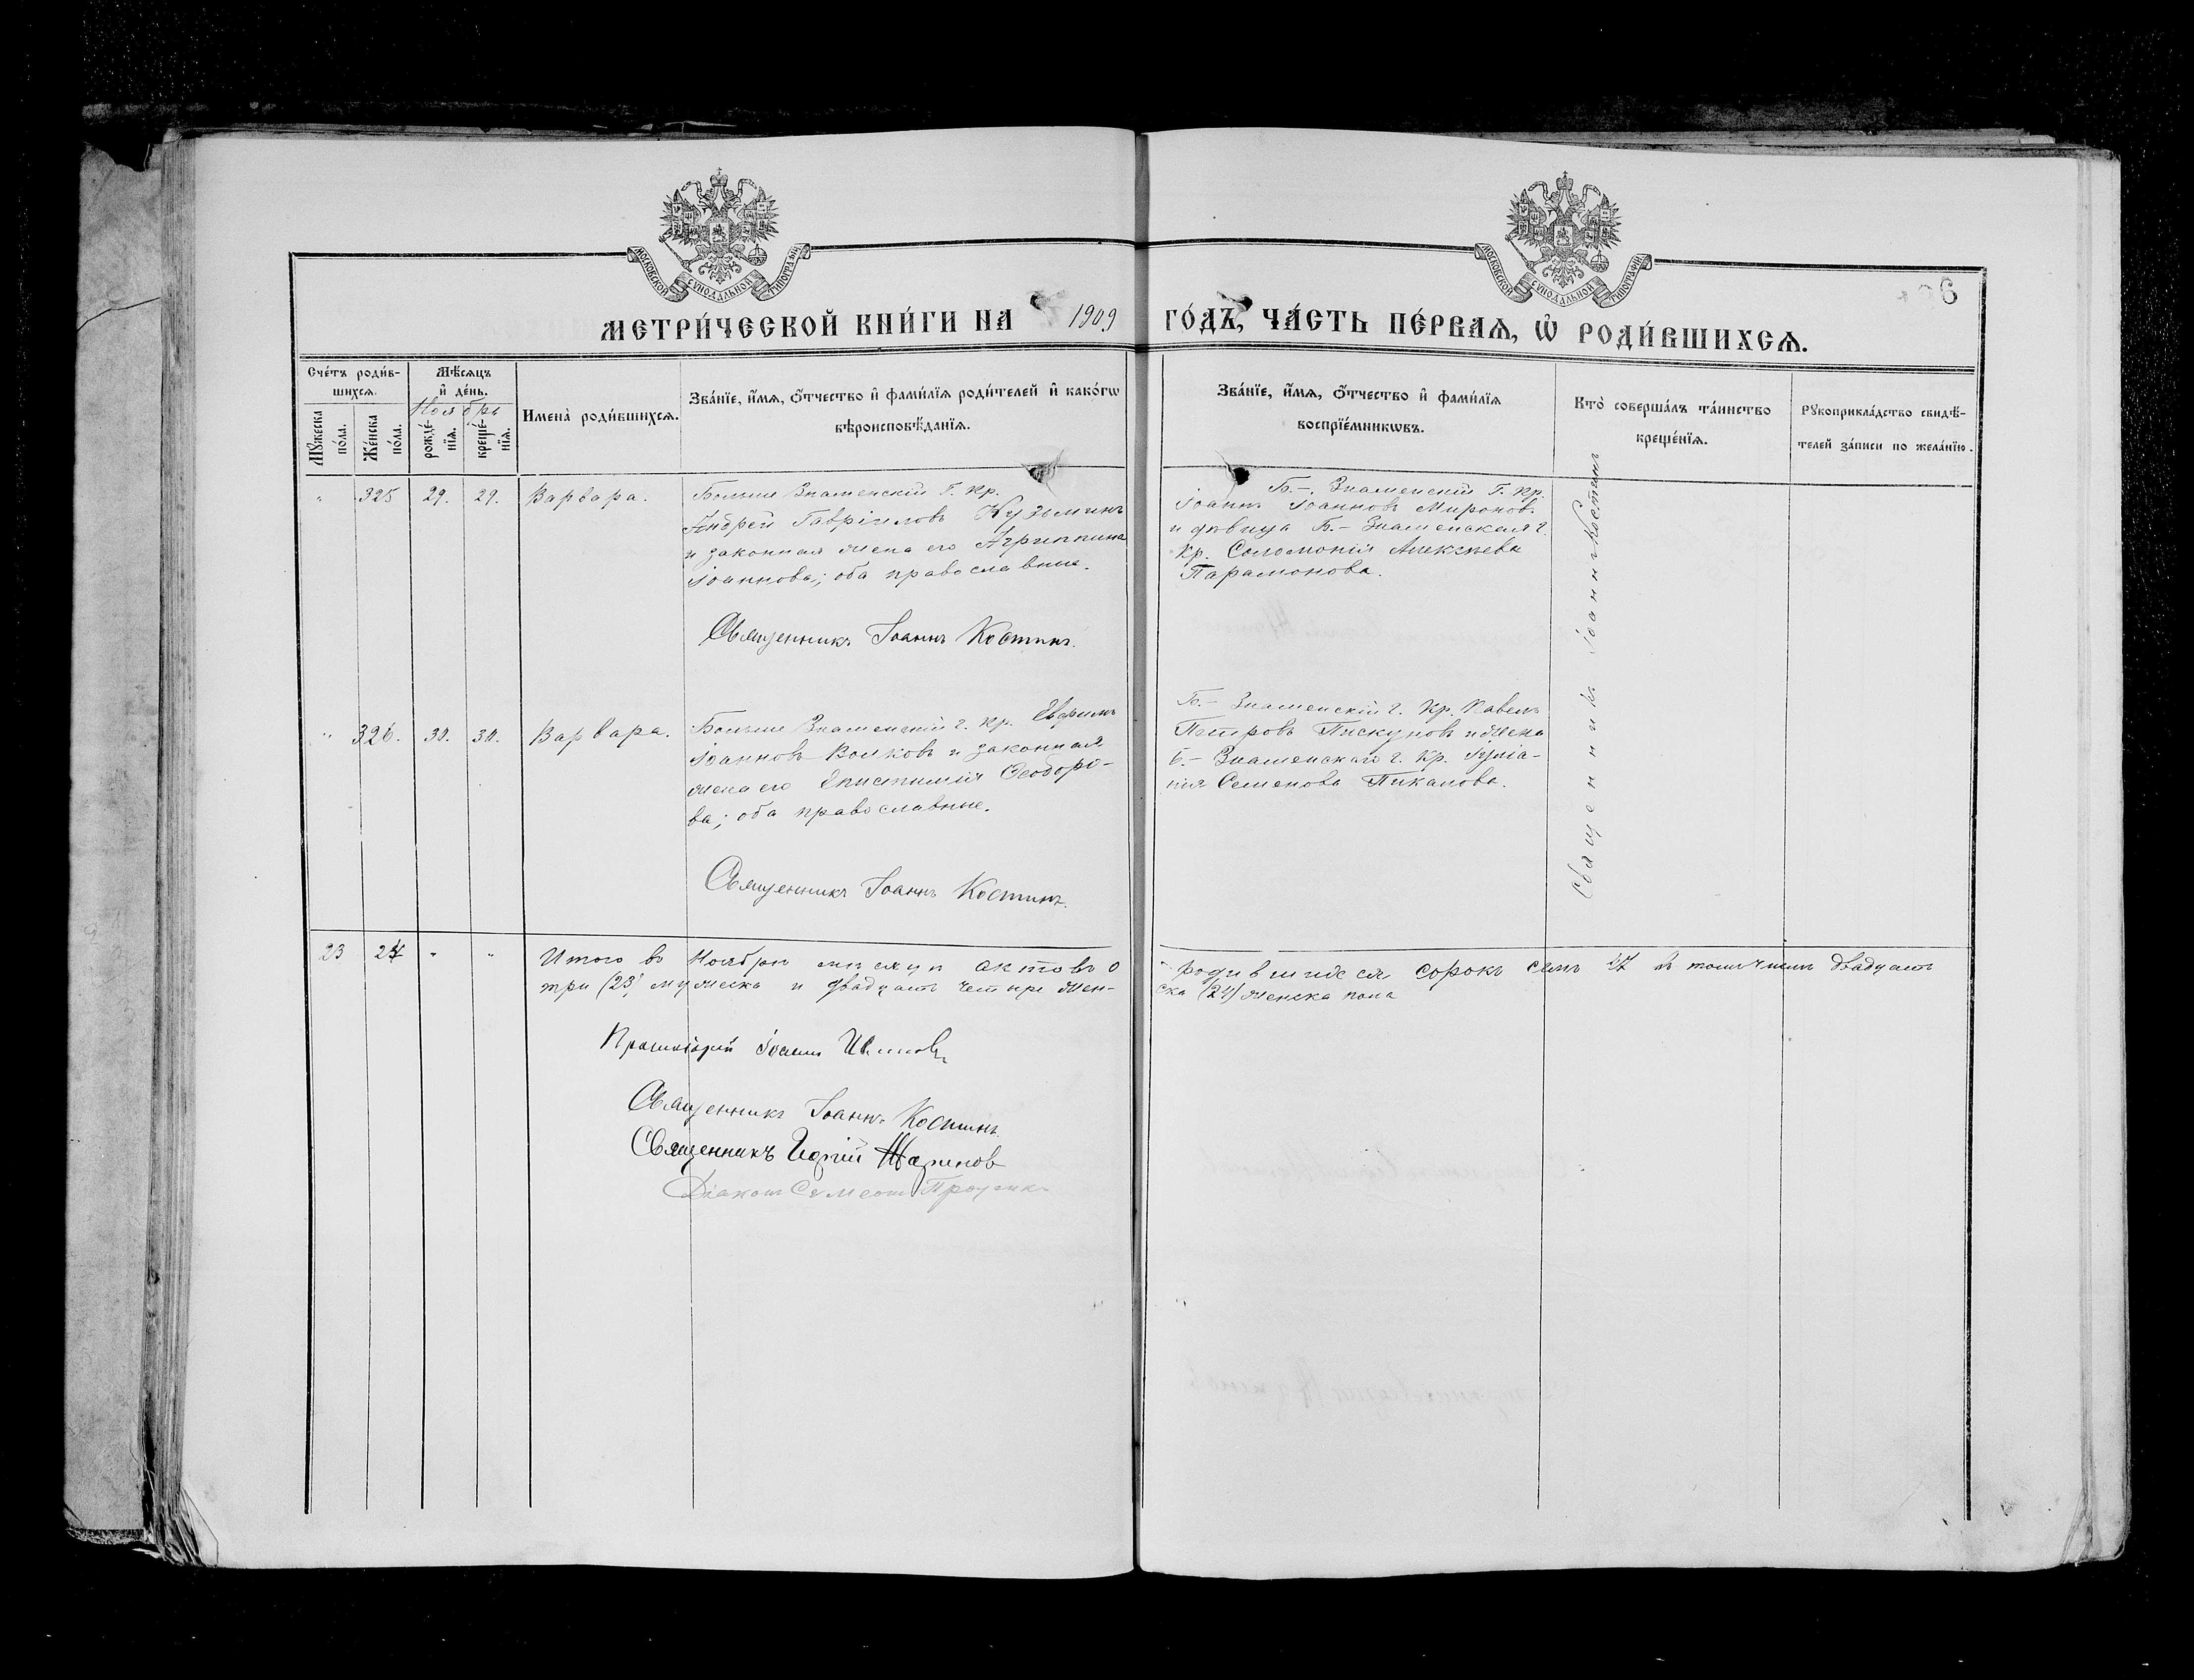 МОСКОВСКОЙ СѴНОДАЛЬНОЙ ТИПОГРАФІИ
МОСКОВСКОЙ СѴНОДАЛЬНОЙ ТИПОГРАФІИ
96
МЕТРИ́ЧЕСКОЙ КНИ́ГИ НА 1909 ГО́ДЪ, ЧА́СТЬ ПЕ́РВАѦ, Ѡ РОДИ́ВШИХСѦ.
Сче́тъ роди́в-
шихсѧ.
Мѣ́сѧцъ
и де́нь.
Ноябрь
Мꙋ́жеска
по́ла.
Же́нска
по́ла.
рожде́-
нїѧ.
креще́-
нїѧ.
Имена̀ роди́вшихсѧ.
Зва́нїе, и́мѧ, ѻ́тчество и фами́лїѧ роди́телей и како́гѡ
вѣроисповѣ́данїѧ.
Зва́нїе, и́мѧ, ѻ́тчество и фами́лїѧ
воспрїе́мникѡвъ.
Кто̀ соверша́лъ та́инство
креще́нїѧ.
Рꙋкоприкла́дство свидѣ́-
телей за́писи по жела́нїю.
" 325 29. 29. Варвара.
Больше Знаменскій Г. Кр.
Андрей Гавріиловъ Кузьминъ
и законная жена его Агриппина
Іоаннова; оба православные.
Священникъ Іоаннъ Костинъ.
Б.-. Знаменскій Г. Кр.
Іоаннъ Іоанновъ Мироновъ
и девица Б.- Знаменская г.
Кр. Соломонія Алексѣева
Парамонова.
Священникъ Іоаннъ Костинъ
" 326. 30. 30. Варвара.
Больше Знаменскій г. Кр. Евфимъ
Іоанновъ Волковъ и законная
жена его Епистимія Ѳеодоро-
ва; оба православные.
Священникъ Іоаннъ Костинъ.
Б.- Знаменскій г. Кр. Павелъ
Петровъ Пискуновъ и жена
Б.- Знаменскаго г. Кр. Іуліа-
нія Семенова Пикалова.
23 24 " "
Итого въ Ноябрѣ мѣсяцѣ актовъ о родившихся сорокъ семь 47 въ томъ числѣ двадцать
три (23) мужеска и двадцать четыре жен-
ска (24) женска пола
Протоіерей Іоаннъ
Священникъ Іоаннъ Костинъ.
Священникъ
Діаконъ Симеонъ